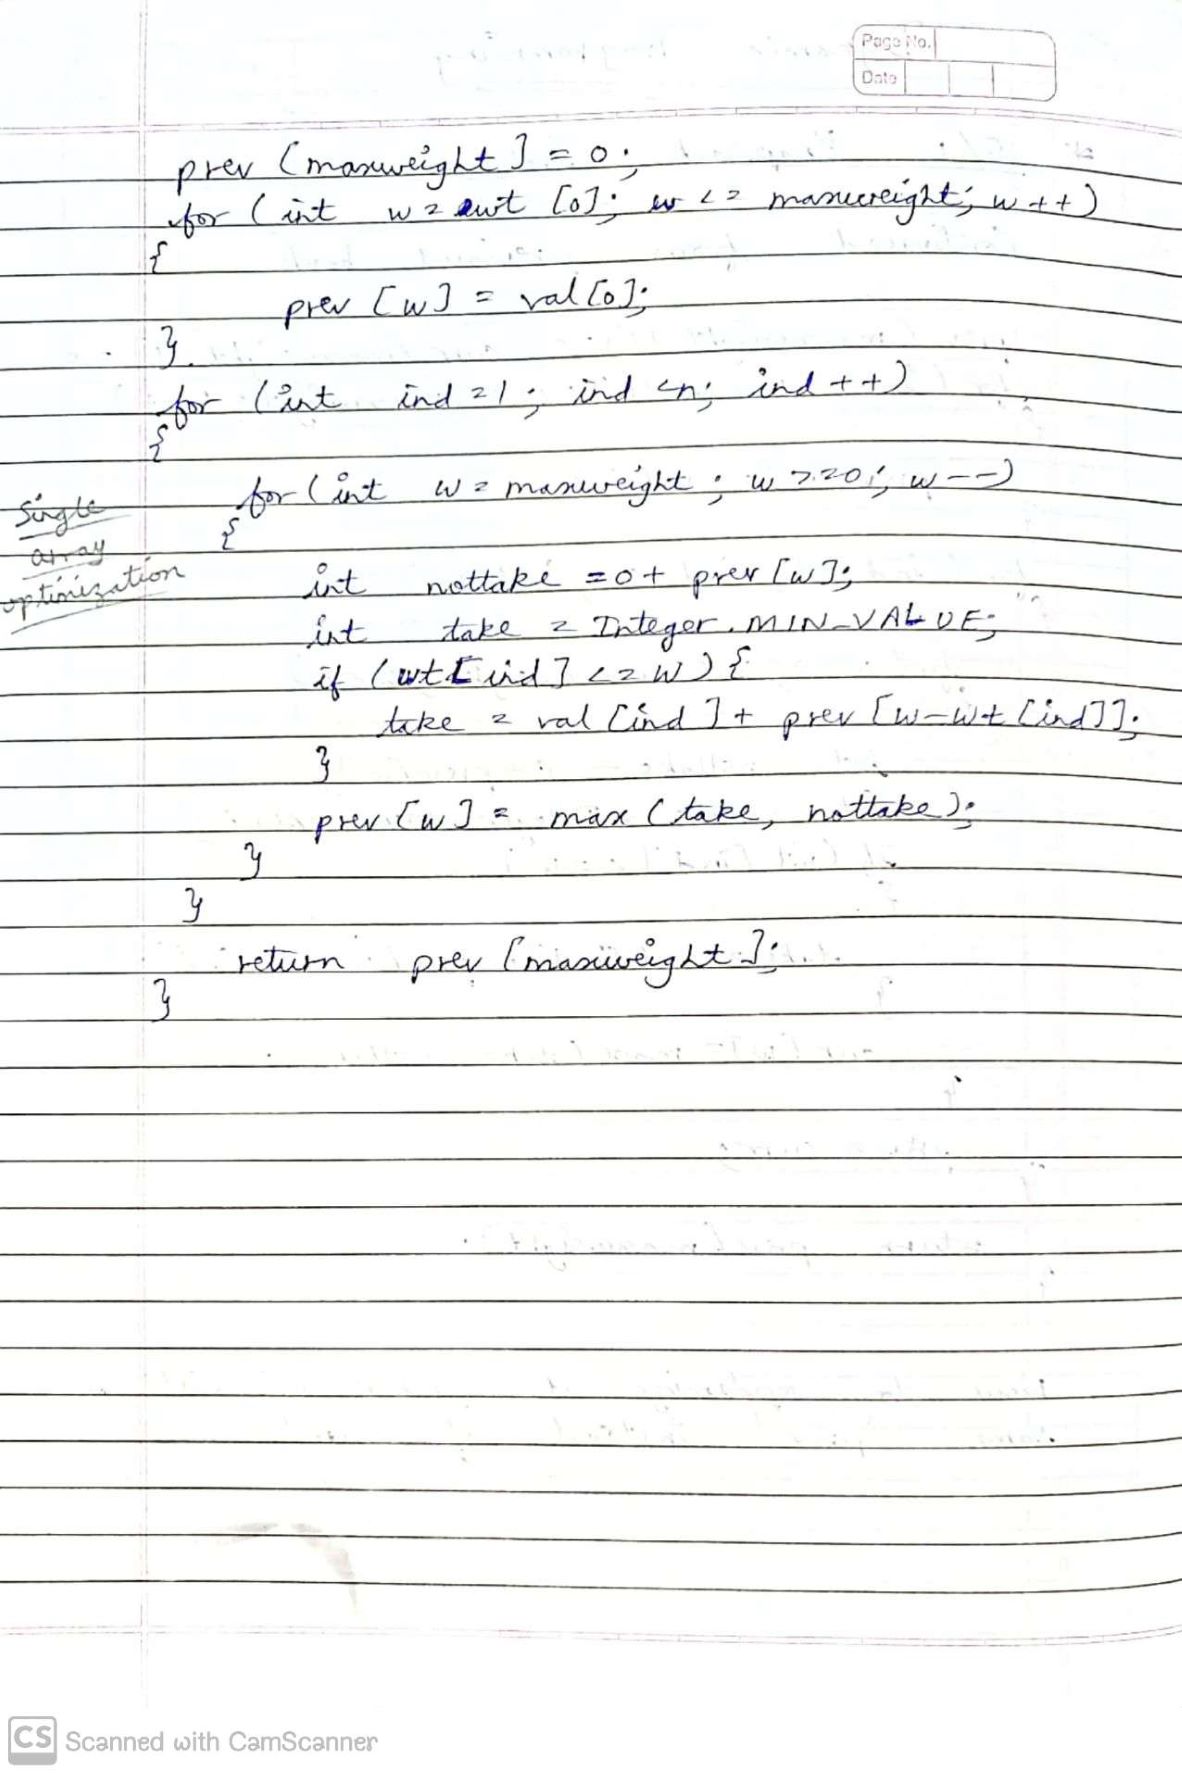 Page No.
Date
prev [maxweight] = 0;
for (int w = wt [0]; w <= maxweight; w++)
{
prev [w] = val [0];
}
for (int ind = 1; ind < n; ind ++)
{
for (int w = maxweight ; w >= 0; w--)
{
Single
array
optimization
int nottake = 0 + prev [w];
int take = Integer.MIN_VALUE;
if (wt[ind] <= w) {
take = val [ind] + prev [w-wt [ind]];
}
prev [w] = max (take, nottake);
}
}
return prev [maxweight];
}
CS Scanned with CamScanner